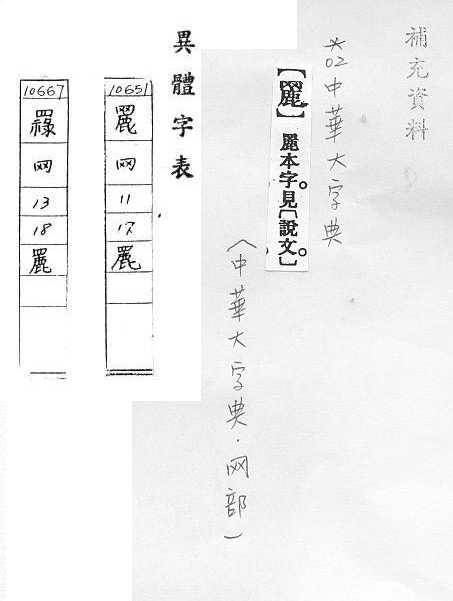 補充資料
*02中華大字典
【䍡】䍡本字。見〔說文〕。
(中華大字典.网部)
異體字表
10651
网
11
17
䍡
10667
网
13
18
䍡